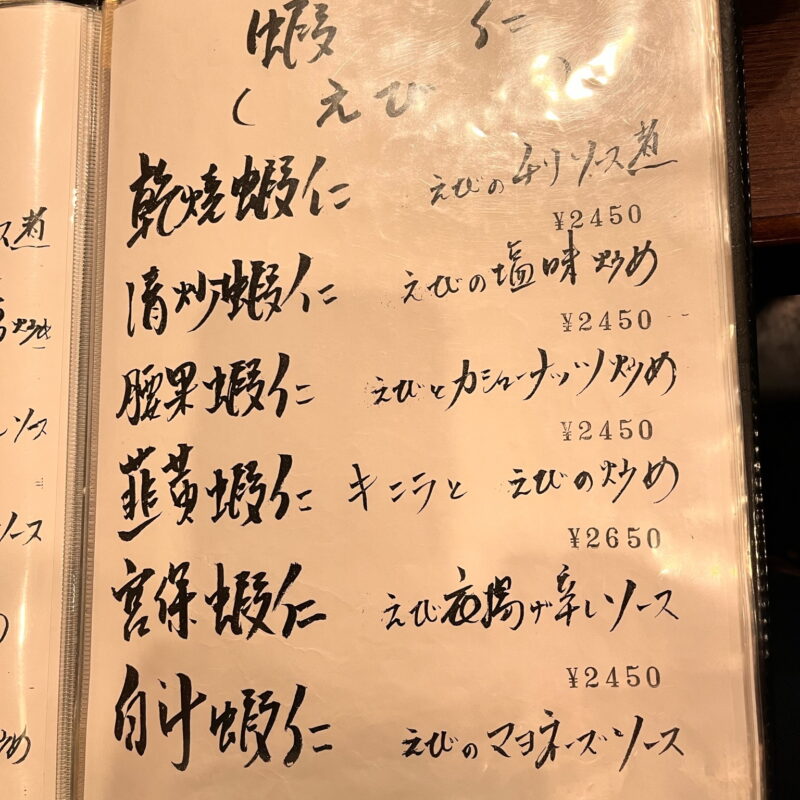 蝦仁
(えび)
乾燒蝦仁 えびのチリソース煮
¥2450
清炒蝦仁 えびの塩味炒め
¥2450
腰果蝦仁 えびとカシューナッツ炒め
¥2450
韮黃蝦仁 キニラと えびの炒め
¥2650
宮保蝦仁 えび衣揚げ辛しソース
¥2450
白汁蝦仁 えびのマヨネーズソース
ス煮
炒め
ソース
ソース